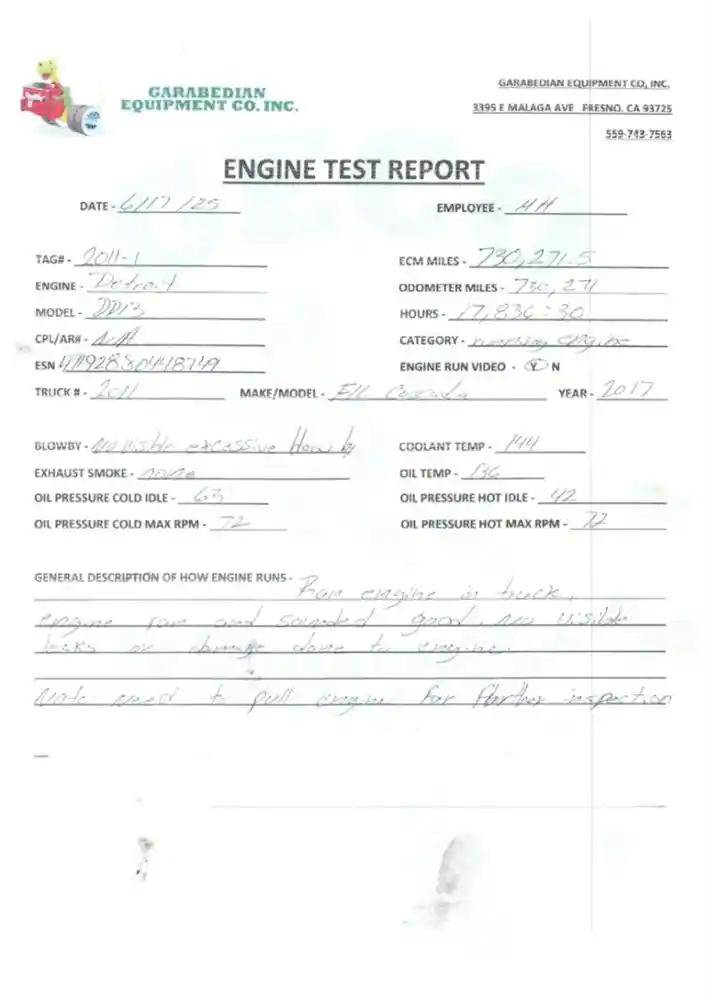 GARABEDIAN
EQUIPMENT CO. INC.
GARABEDIAN EQUIPMENT CO, INC.
3395 E MALAGA AVE FRESNO, CA 93725
559-743-7563
ENGINE TEST REPORT
DATE - 6/17/25 EMPLOYEE - MH
TAG# - 2011-1 ECM MILES - 730,271.5
ENGINE - Detroit ODOMETER MILES - 730,271
MODEL - DD13 HOURS - 17,836:30
CPL/AR# - N/A CATEGORY - running engine
ESN CATEGORY ENGINE RUN VIDEO - Y N
TRUCK # - 2011 MAKE/MODEL - YEAR - 2017
BLOWBY - No visible excessive blow by COOLANT TEMP - 144
EXHAUST SMOKE - none OIL TEMP - 136
OIL PRESSURE COLD IDLE - 63 OIL PRESSURE HOT IDLE - 42
OIL PRESSURE COLD MAX RPM - 72 OIL PRESSURE HOT MAX RPM - 72
GENERAL DESCRIPTION OF HOW ENGINE RUNS - Ran engine in truck,
engine ran and sounded good. No visible
leaks or damage done to engine.
Note need to pull engine for further inspection